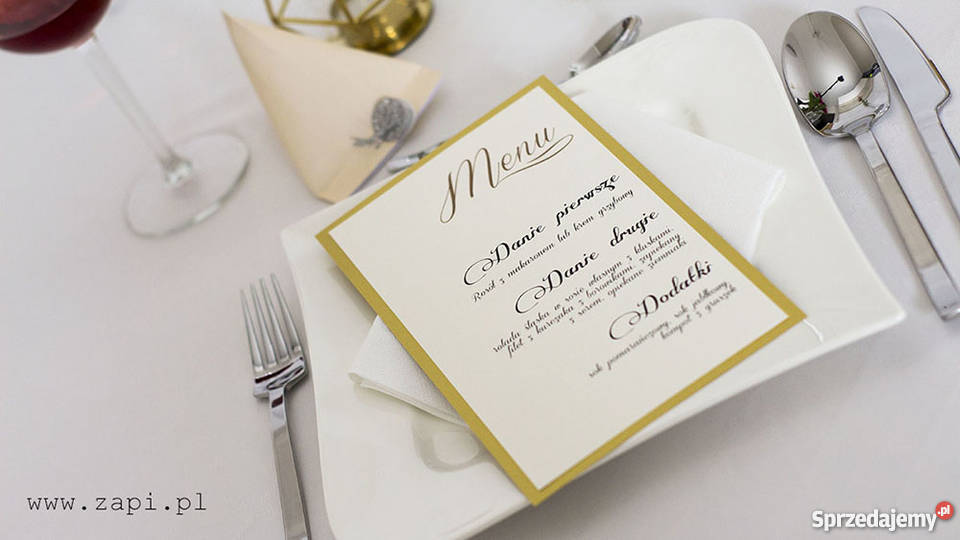 Menu
Danie pierwsze
Rosół z makaronem lub krem grzybowy
Danie drugie
rolada śląska w sosie własnym z kluskami,
filet z kurczaka z borówkami, zapiekany
z serem, opiekane ziemniaki
Dodatki
sok pomarańczowy, sok jabłkowy,
kompot z gruszek
www.zapi.pl
Sprzedajemy.pl